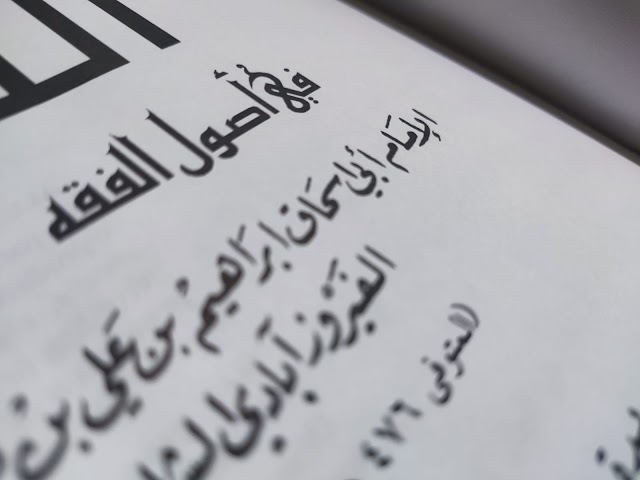 في أصول الفقه
الإمام أبي إسحاق إبراهيم بن علي بن
الفيروز آبادي
المتوفى ٤٧٦